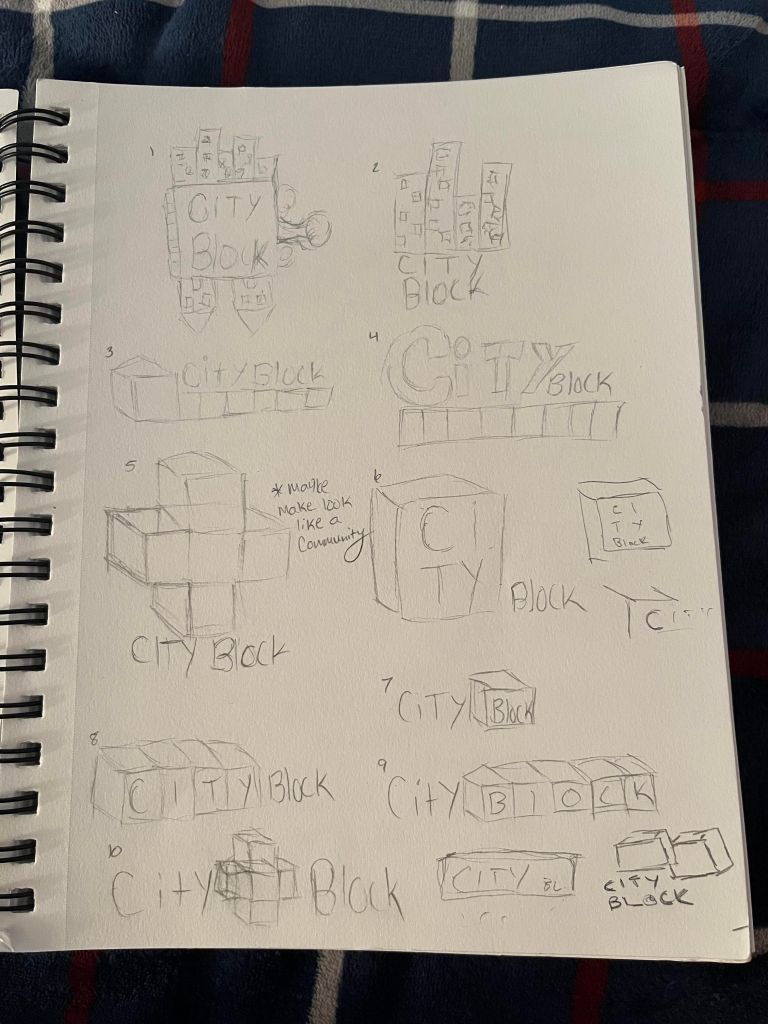 1
CITY
BLOCK
2
CITY
BLOCK
3
CityBlock
4
CiTY BLOCK
5
* maybe
make look
like a
Community
CITY BLOCK
6
C i
T Y
BLOCK
C I
T Y
Block
C I
7
CiTY Block
8
C I T Y Block
9
City B L O C K
10
City Block
CITY BL
CITY
BLOCK